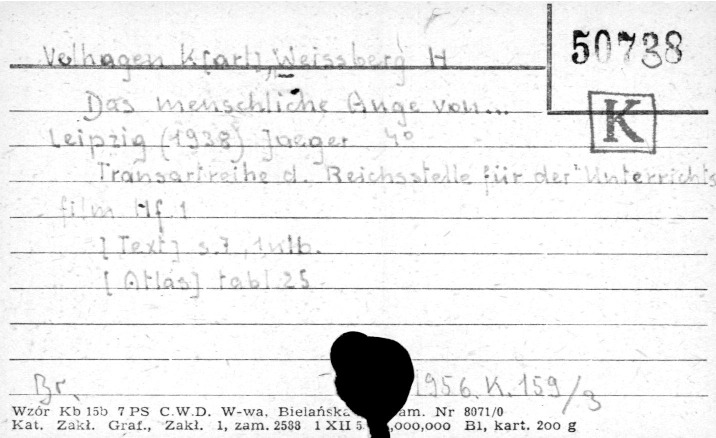 50738
Velhagen K[arl], Weissberg H
K
Das menschliche Auge von...
Leipzig (1938) Jaeger 4°
Transartreihe d. Reichsstelle für der Unterrichts
film Hf. 1
[Text] s. 7, 1 nlb.
[Atlas] tabl 25
Br. 1956. K. 159/3
Wzór Kb 15b 7 PS C.W.D. W-wa, Bielańska am. Nr 8071/0
Kat. Zakł. Graf., Zakł. 1, zam. 2588 1 XII 5 ,000,000 B1, kart. 200 g